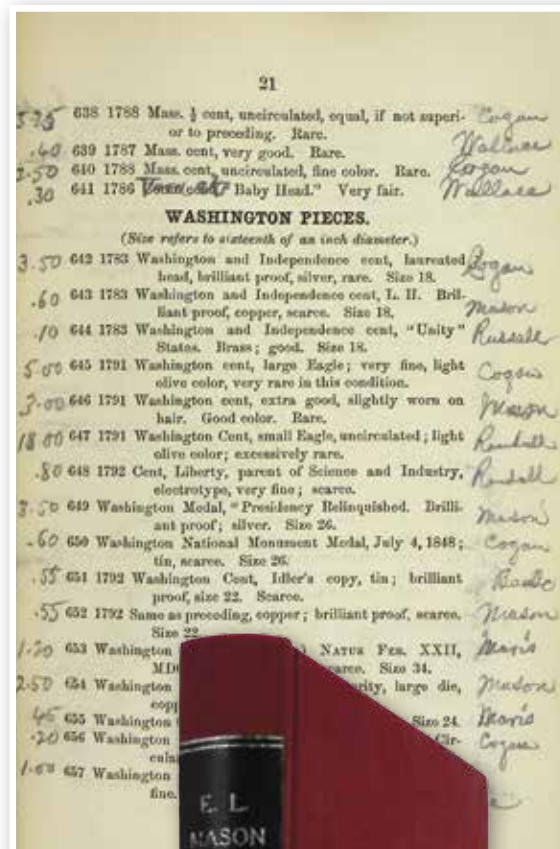 21
3.75 638 1788 Mass. ½ cent, uncirculated, equal, if not superi- Cogan
or to preceding. Rare.
.40 639 1787 Mass. cent, very good. Rare. Wallace
2.50 640 1788 Mass. cent, uncirculated, fine color. Rare. Cogan
.30 641 1786 Baby Head." Very fair. Wallace
WASHINGTON PIECES.
(Size refers to sixteenth of an inch diameter.)
3.50 642 1783 Washington and Independence cent, laureated Cogan
head, brilliant proof, silver, rare. Size 18.
.60 643 1783 Washington and Independence cent, L. H. Bril-
liant proof, copper, scarce. Size 18. Mason
.10 644 1783 Washington and Independence cent, "Unity" Russell
States. Brass; good. Size 18.
5.00 645 1791 Washington cent, large Eagle; very fine, light Cogan
olive color, very rare in this condition.
3.00 646 1791 Washington cent, extra good, slightly worn on Mason
hair. Good color. Rare.
18.00 647 1791 Washington Cent, small Eagle, uncirculated; light Randall
olive color; excessively rare.
.80 648 1792 Cent, Liberty, parent of Science and Industry, Randall
electrotype, very fine; scarce.
3.50 649 Washington Medal, "Presidency Relinquished. Brilli- Mason
ant proof; silver. Size 26.
.60 650 Washington National Monument Medal, July 4, 1848; Cogan
tin, scarce. Size 26.
.55 651 1792 Washington Cent, Idler's copy, tin; brilliant
proof, size 22. Scarce.
.55 652 1792 Same as preceding, copper; brilliant proof, scarce. Mason
Size 22.
1.20 653 Washington NATUS FEB. XXII, Maris
Size 34.
2.50 654 Washington large die, Mason
45 655 Washington Size 24. Maris
.20 656 Washington Cir- Cogan
1.00 657 Washington
fine.
E. L.
MASON